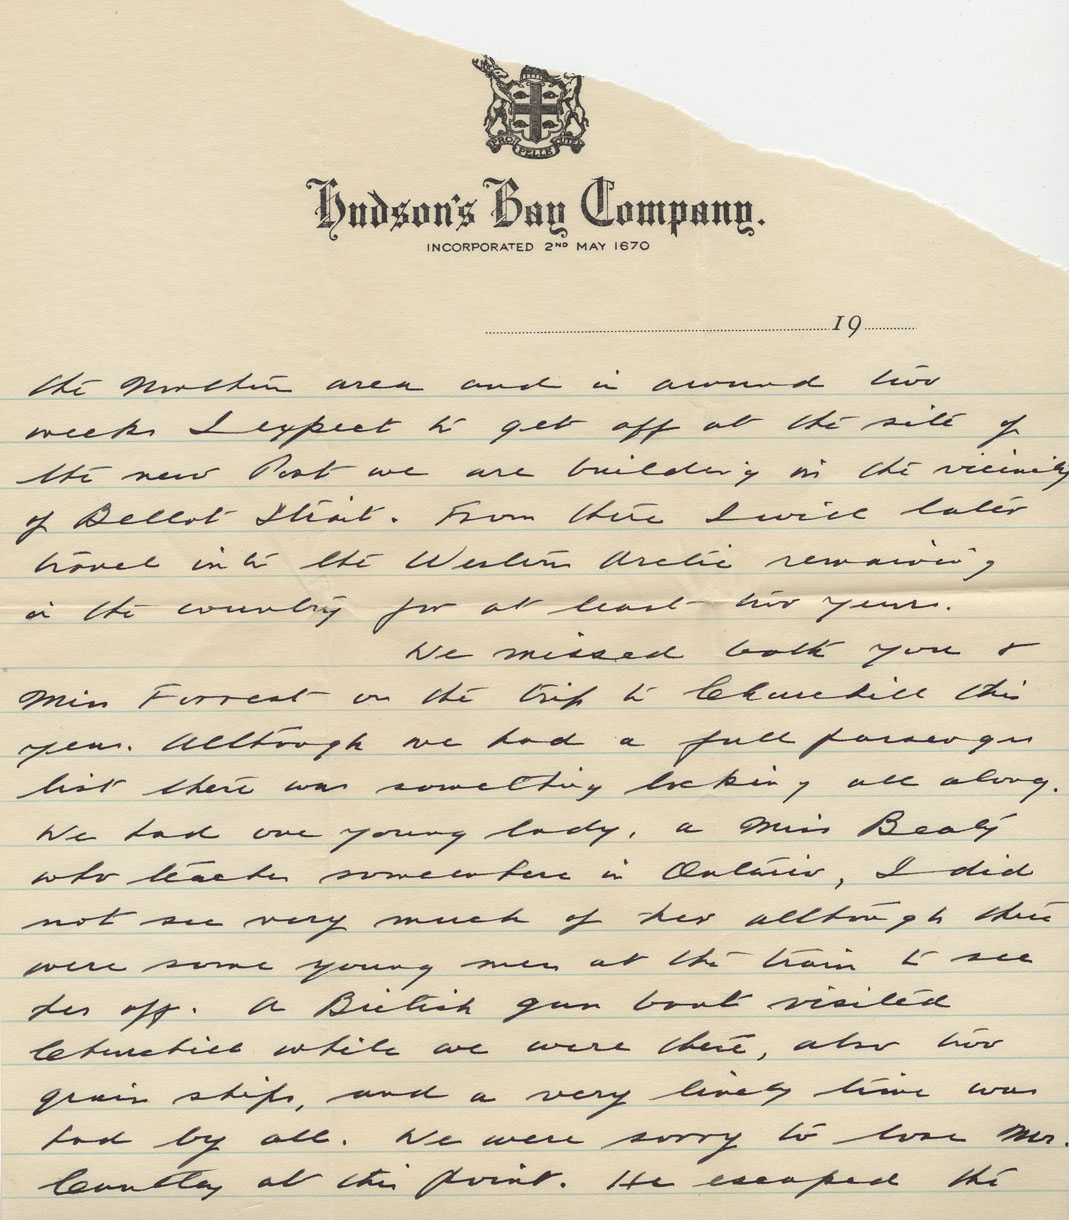 PRO PELLE CUTEM
Hudson's Bay Company.
INCORPORATED 2ND MAY 1670
19
the Northern area and in around two
weeks I expect to get off at the site of
the new Post we are building in the vicinity
of Bellot Strait. From there I will later
travel into the Western Arctic remaining
in the country for at least two years.
We missed both you &
Miss Forrest on the trip to Churchill this
year. Allthough we had a full passenger
list there was something lacking all along.
We had one young lady, a Miss Beaty
who teaches somewhere in Ontario, I did
not see very much of her allthough there
were some young men at the train to see
her off. A British gun boat visited
Churchill while we were there, also two
grain ships, and a very lively time was
had by all. We were sorry to lose Mr.
at this point. He escaped the